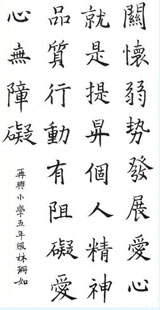 關懷弱勢發展愛心
就是提昇個人精神
品質行動有阻礙愛
心無障礙
興小學五年級林如